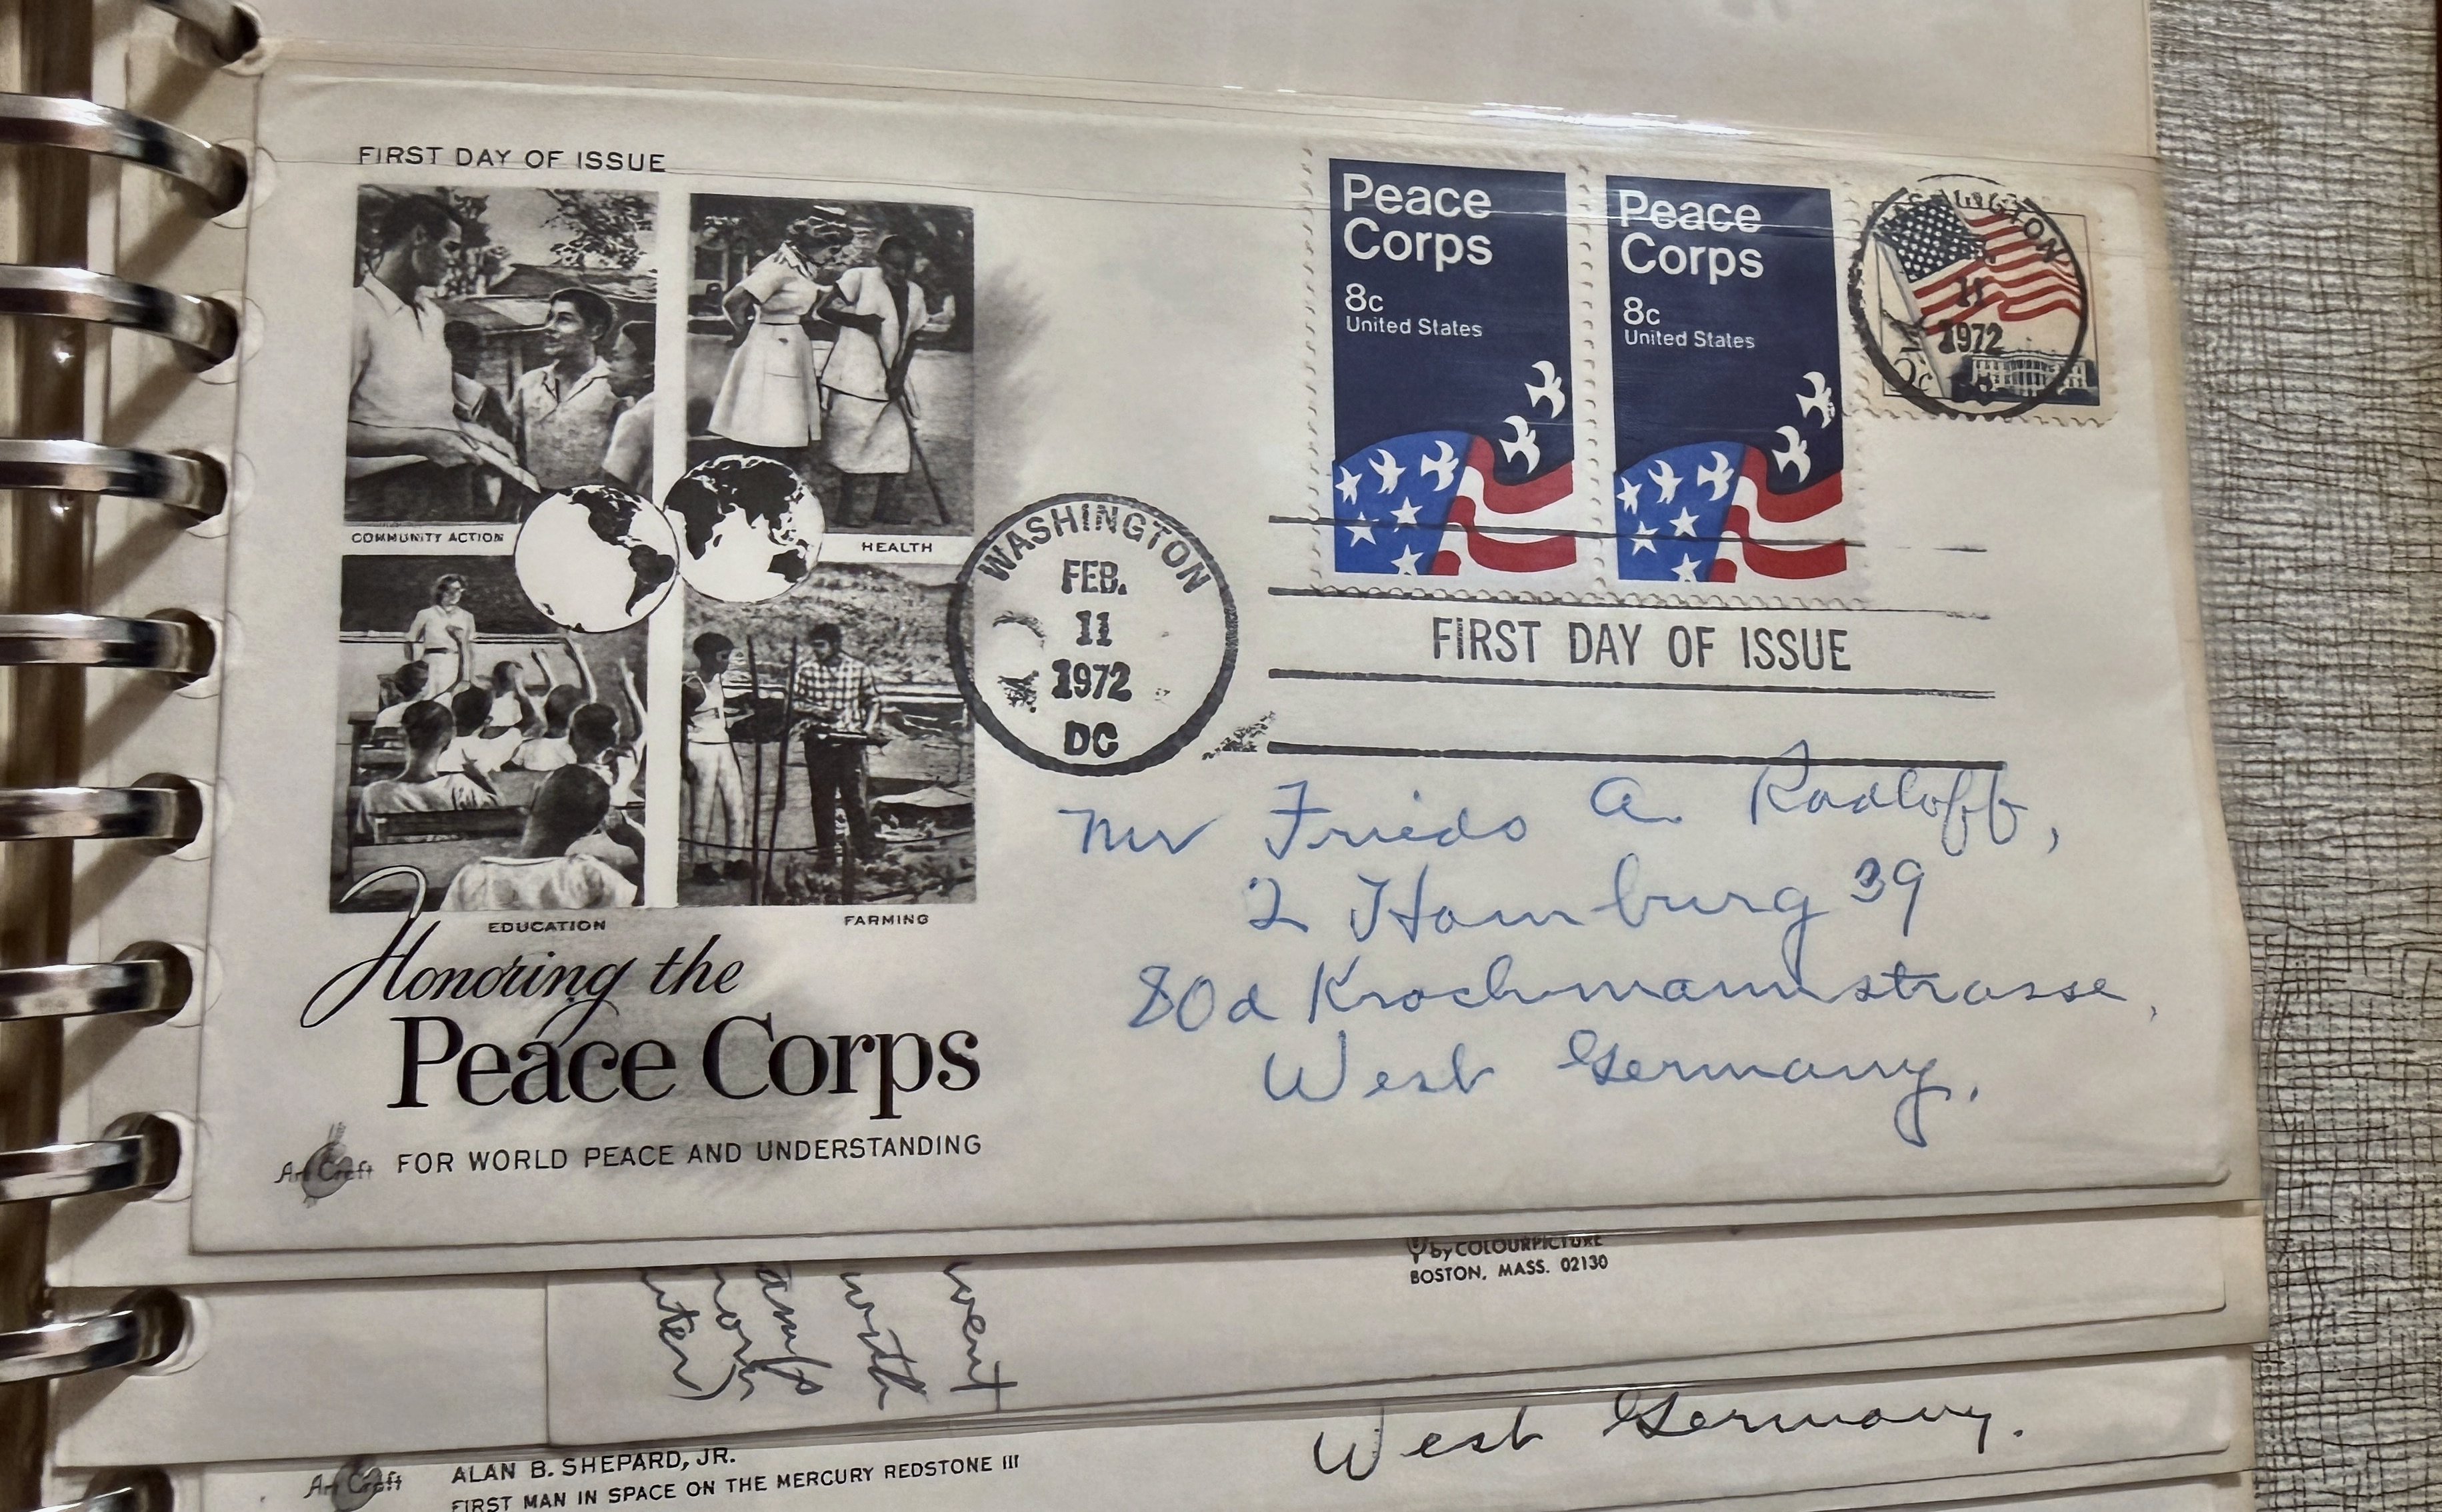 FIRST DAY OF ISSUE
COMMUNITY ACTION
HEALTH
EDUCATION
FARMING
Honoring the
Peace Corps
FOR WORLD PEACE AND UNDERSTANDING
Art Craft
WASHINGTON
FEB.
11
1972
DC
Peace
Corps
8c
United States
Peace
Corps
8c
United States
WASHINGTON
11
1972
FIRST DAY OF ISSUE
Mr Friedo A. Radloff,
2 Hamburg 39
80d Krochmannstrasse,
West Germany.
by COLOURPICTURE
BOSTON, MASS. 02130
West Germany.
Art Craft
ALAN B. SHEPARD, JR.
FIRST MAN IN SPACE ON THE MERCURY REDSTONE III